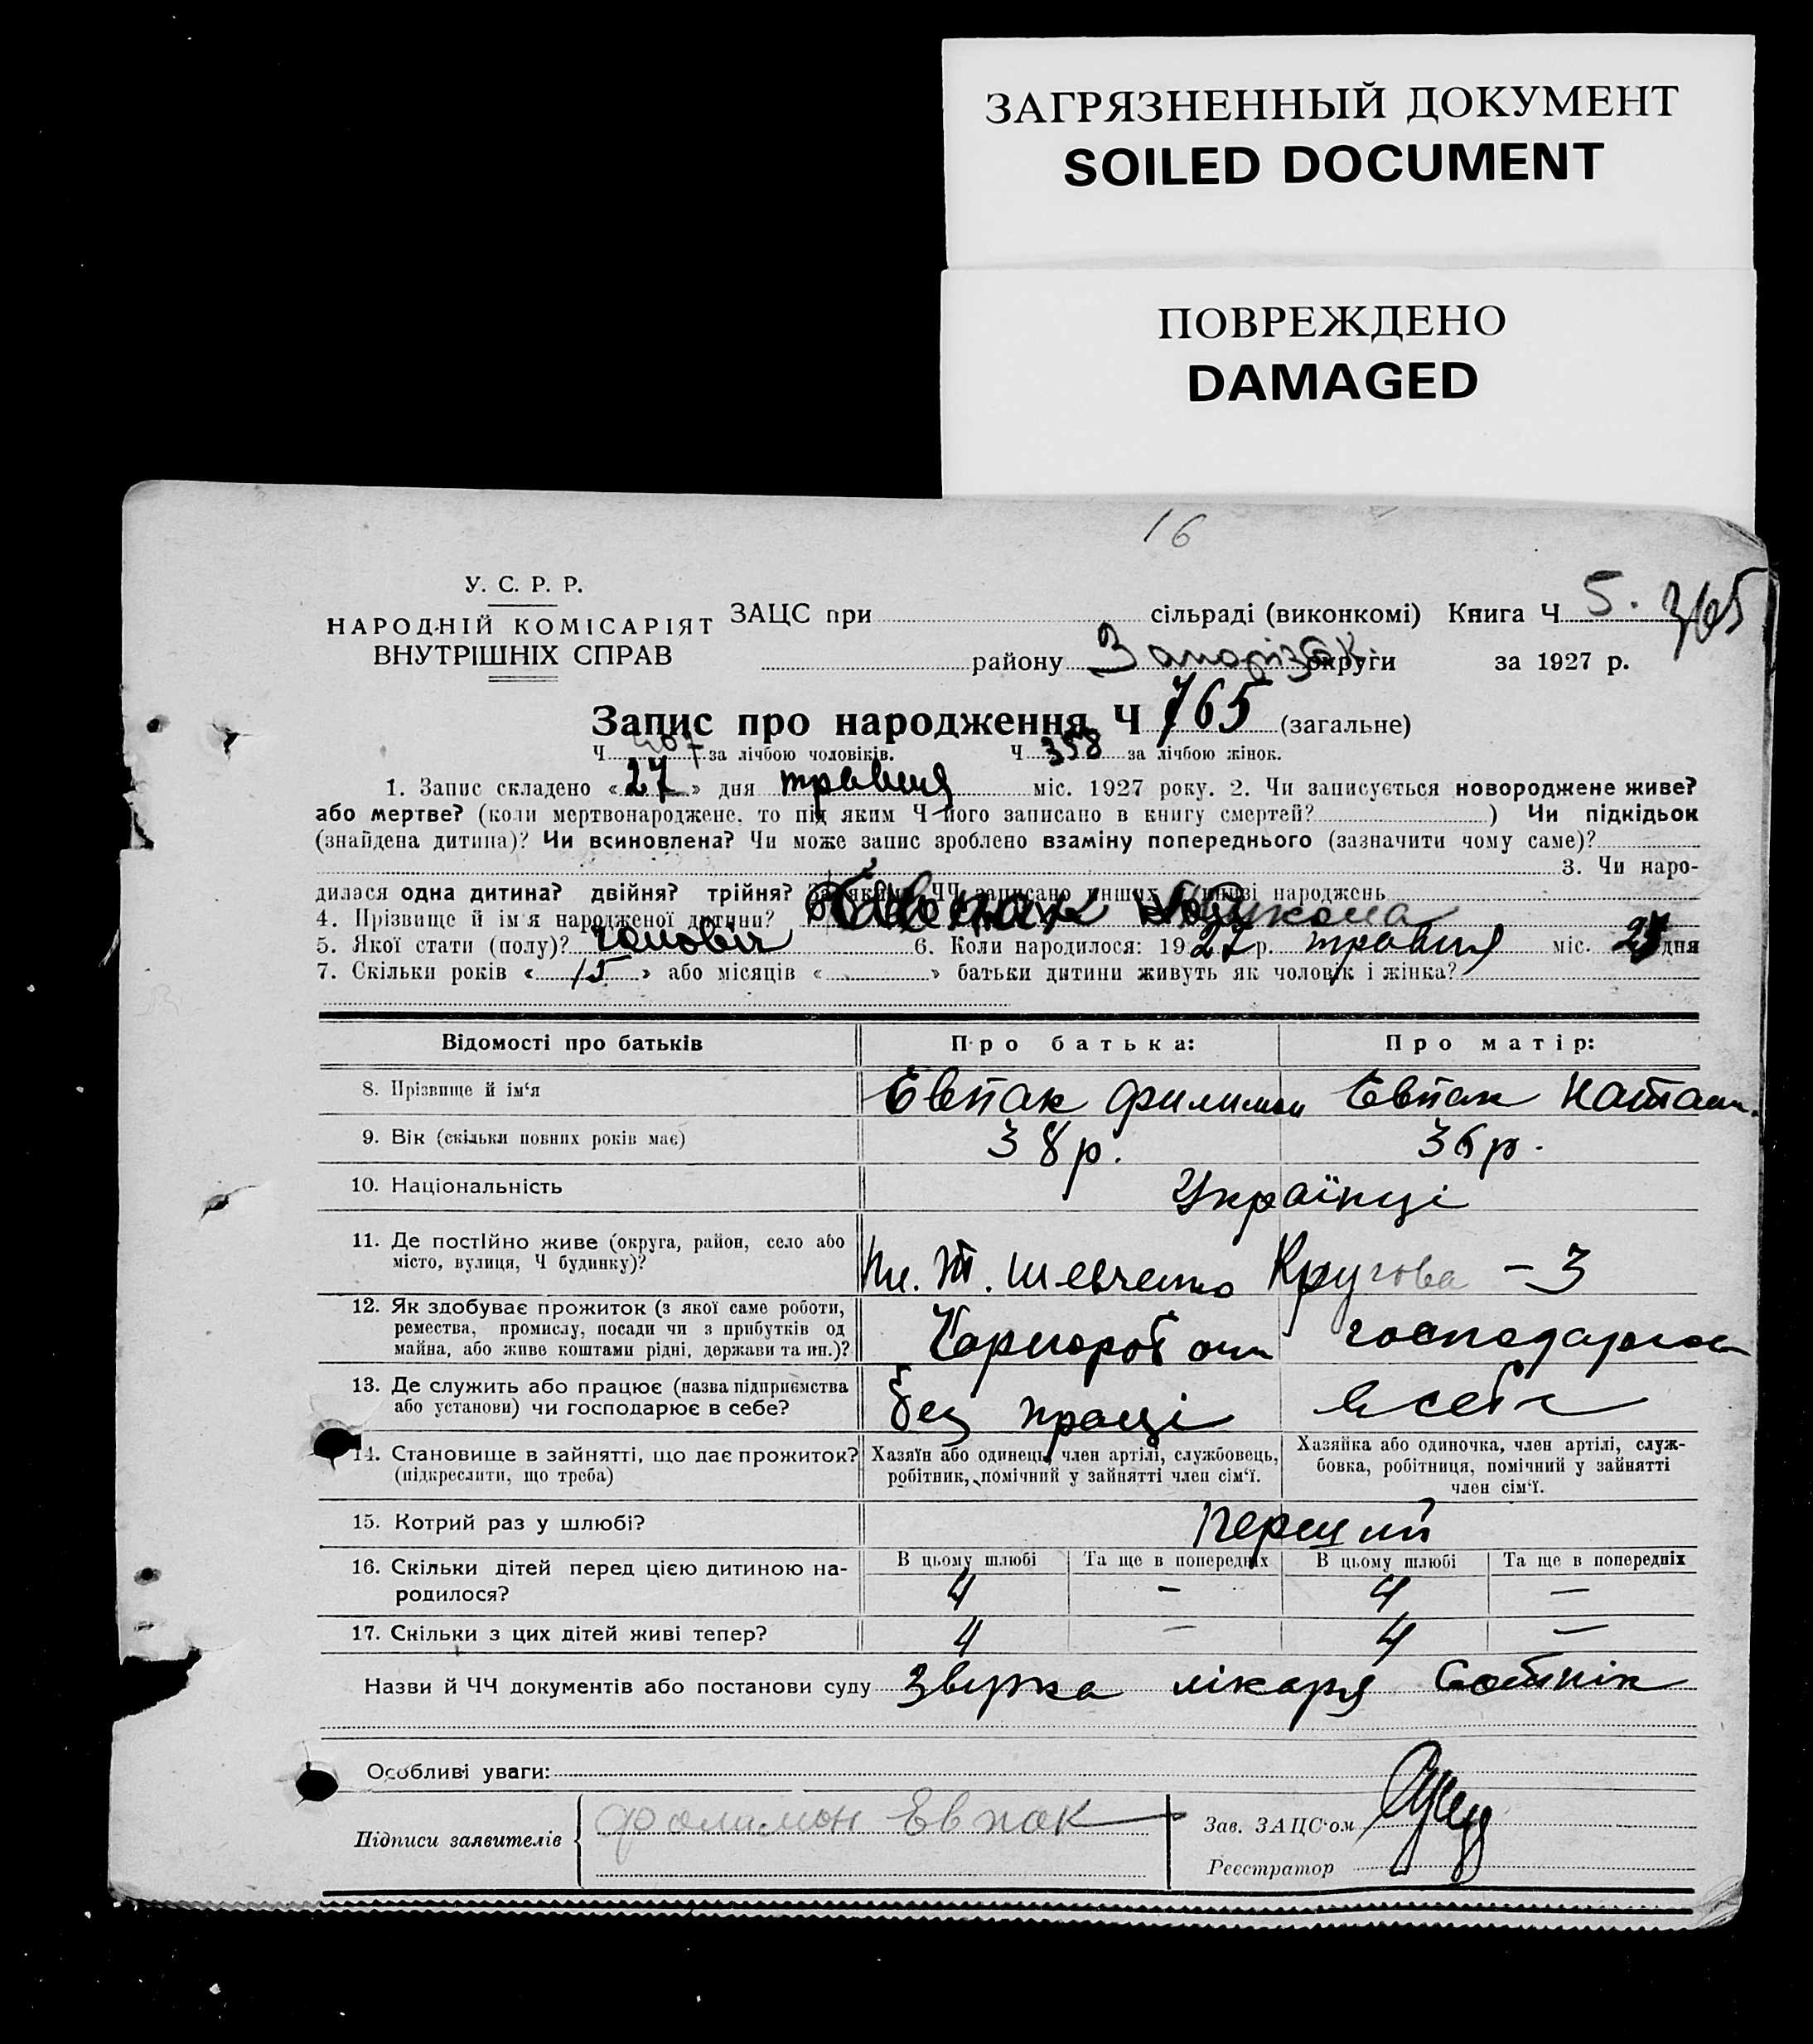 ЗАГРЯЗНЕННЫЙ ДОКУМЕНТ
SOILED DOCUMENT
ПОВРЕЖДЕНО
DAMAGED
16
У. С. Р. Р.
НАРОДНІЙ КОМІСАРІЯТ
ВНУТРІШНІХ СПРАВ
ЗАЦС при сільраді (виконкомі) Книга Ч 5. 365
району Запорізьк округи за 1927 р.
Запис про народження Ч 765 (загальне)
Ч 407 за лічбою чоловіків. Ч 358 за лічбою жінок.
1. Запис складено «27» дня травня міс. 1927 року. 2. Чи записується новороджене живе?
або мертве? (коли мертвонароджене, то під яким Ч його записано в книгу смертей? ) Чи підкідьок
(знайдена дитина)? Чи всиновлена? Чи може запис зроблено взаміну попереднього (зазначити чому саме)?
3. Чи наро-
дилася одна дитина? двійня? трійня? За якими ЧЧ записано инших в книзі народжень
4. Прізвище й ім'я народженої дитини? Евпак
5. Якої стати (полу)? чоловіч 6. Коли народилося: 1927 р. травня міс. дня
7. Скільки років «15» або місяців « » батьки дитини живуть як чоловік і жінка?
Відомості про батьків Про батька: Про матір:
8. Прізвище й ім'я Евпак Филимон Евпак Натал.
9. Вік (скільки повних років має) 38 р. 36 р.
10. Національність Українці
11. Де постійно живе (округа, район, село або
місто, вулиця, Ч будинку)? Т. Шевченко Кругова - 3
12. Як здобуває прожиток (з якої саме роботи,
ремества, промислу, посади чи з прибутків од
майна, або живе коштами рідні, держави та ин.)? Чорнороб
13. Де служить або працює (назва підприємства
або установи) чи господарює в себе? без праці в себе
14. Становище в зайнятті, що дає прожиток?
(підкреслити, що треба)
Хазяїн або одинець, член артілі, службовець,
робітник, помічний у зайнятті член сім'ї.
Хазяйка або одиночка, член артілі, служ-
бовка, робітниця, помічний у зайнятті
член сім'ї.
15. Котрий раз у шлюбі? перший
В цьому шлюбі Та ще в попередніх В цьому шлюбі Та ще в попередніх
16. Скільки дітей перед цією дитиною на-
родилося? 4 - 4 -
17. Скільки з цих дітей живі тепер? 4 - 4 -
Назви й ЧЧ документів або постанови суду лікаря
Особливі уваги:
Підписи заявителів Филимон Евпак
Зав. ЗАЦС'ом
Реєстратор